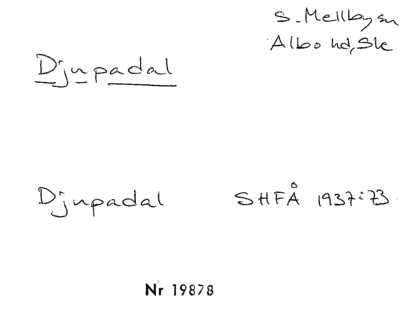 S. Mellby sn
Albo hd, Sk
Djupadal
Djupadal SHFÅ 1937:73
Nr 19878